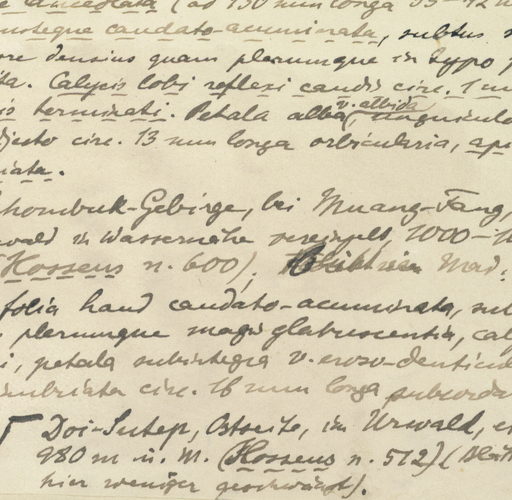 lanceolata (ad 130 mm longa 35-42 m
caudato-acuminata, subtus
ore densius quam plerumque in typo
ita. Calycis lobi reflexi caudis circ. 1 m
is terminati. Petala alba v. albida unguiculo
circ. 13 mm longa orbicularia,
iata.
hombuk-Gebirge, bei Muang-Fang,
wald in Wassernähe vereinzelt, 1000-1
Hosseus n. 600),
folia haud caudato-acuminata, sub
plerumque magis glabrescentia, caly
i, petala subintegra v. eroso-denticul
imbriata circ. 16 mm longa
Doi-Sutep, Ostseite, im Urwald,
980 m ü. M. (Hosseus n. 512) (
hier weniger geschwänzt).